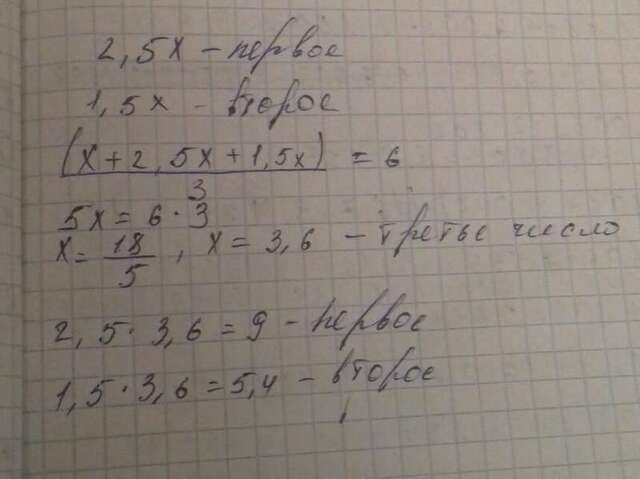 2,5x – первое
1,5x – второе
(x + 2,5x + 1,5x) = 6
3
5x = 6 · 3
x = 18/5, x = 3,6 – третье число
2,5 · 3,6 = 9 – первое
1,5 · 3,6 = 5,4 – второе